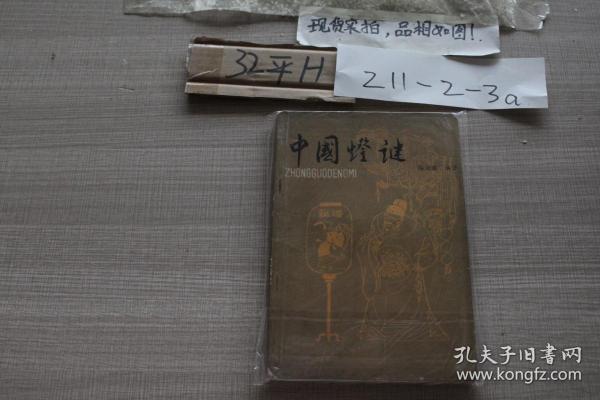 现货实拍，品相如图！.
32平H
Z11-2-3a
中國燈谜
ZHONGGUODENGMI
孔夫子旧书网
www.kongfz.com